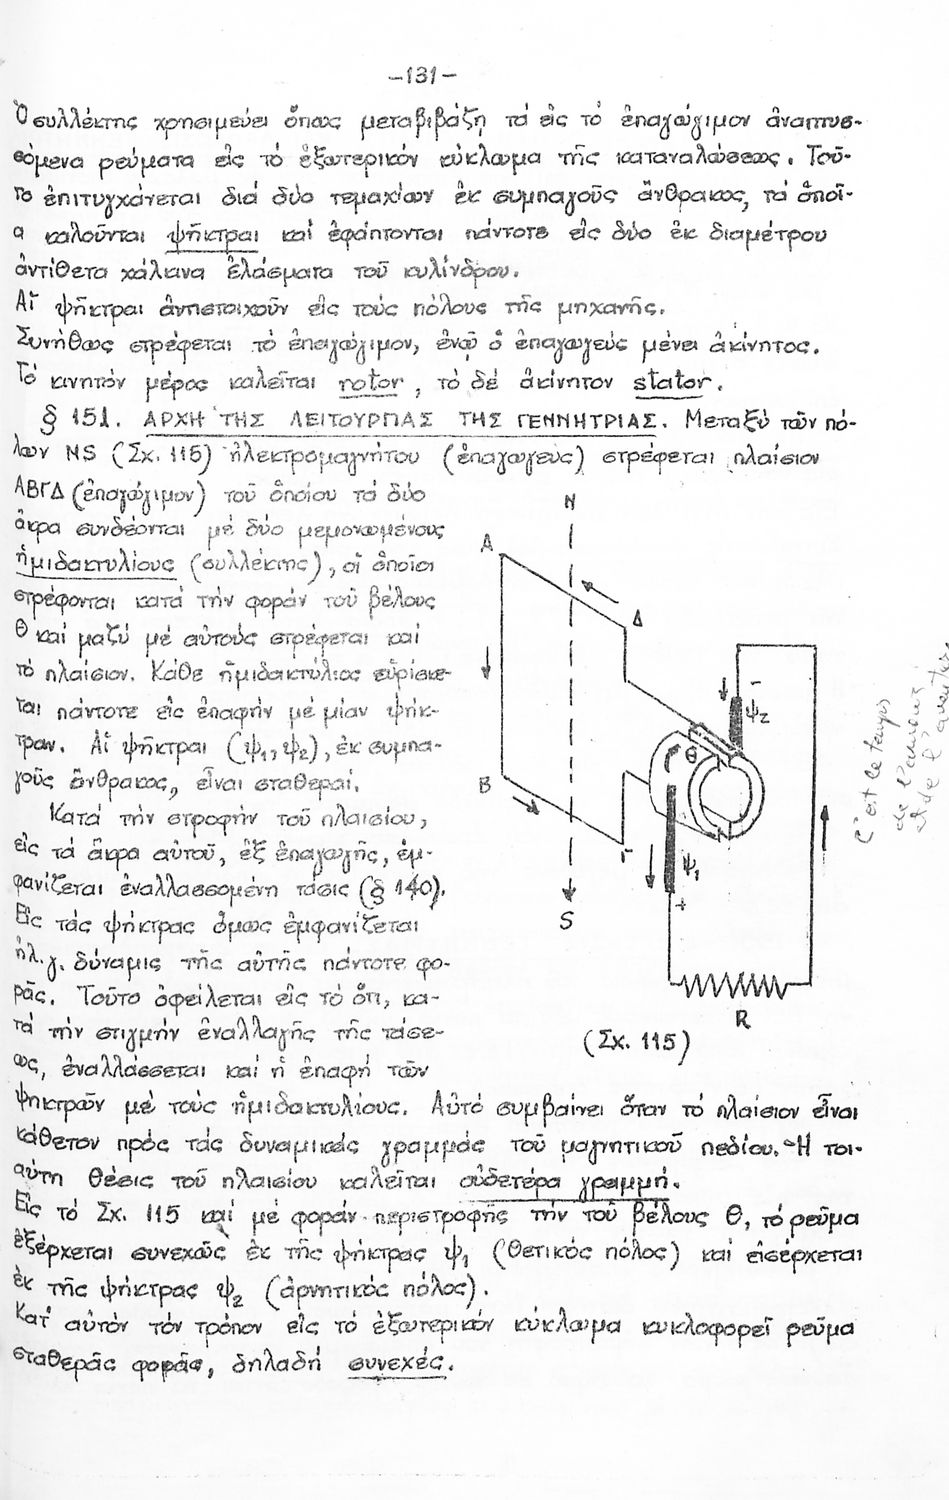 -131-
Ὁ συλλέκτης χρησιμεύει ὅπως μεταβιβάζῃ τά εἰς τό ἐπαγώγιμον ἀναπτυσ-
σόμενα ρεύματα εἰς τό ἐξωτερικόν κύκλωμα τῆς καταναλώσεως. Τοῦ-
το ἐπιτυγχάνεται διά δύο τεμαχίων ἐκ συμπαγοῦς ἄνθρακος, τά ὁποῖ-
α καλοῦνται ψῆκτραι καί ἐφάπτονται πάντοτε εἰς δύο ἐκ διαμέτρου
ἀντίθετα χάλκινα ἐλάσματα τοῦ κυλίνδρου.
Αἵ ψῆκτραι ἀντιστοιχοῦν εἰς τούς πόλους τῆς μηχανῆς.
Συνήθως στρέφεται τό ἐπαγώγιμον, ἐνῷ ὁ ἐπαγωγεύς μένει ἀκίνητος.
Τό κινητόν μέρος καλεῖται rotor, τό δέ ἀκίνητον stator.
§ 151. ΑΡΧΗ ΤΗΣ ΛΕΙΤΟΥΡΓΙΑΣ ΤΗΣ ΓΕΝΝΗΤΡΙΑΣ. Μεταξύ τῶν πό-
λων NS (Σχ. 115) ἠλεκτρομαγνήτου (ἐπαγωγεύς) στρέφεται πλαίσιον
ΑΒΓΔ (ἐπαγώγιμον) τοῦ ὁποίου τά δύο
ἄκρα συνδέονται μέ δύο μεμονωμένους
ἡμιδακτυλίους (συλλέκτης), οἱ ὁποῖοι
στρέφονται κατά τήν φοράν τοῦ βέλους
Θ καί μαζύ μέ αὐτούς στρέφεται καί
τό πλαίσιον. Κάθε ἡμιδακτύλιος εὑρίσκε-
ται πάντοτε εἰς ἐπαφήν μέ μίαν ψήκ-
τραν. Αἱ ψῆκτραι (ψ₁, ψ₂), ἐκ συμπα-
γοῦς ἄνθρακος, εἶναι σταθεραί.
Κατά τήν στροφήν τοῦ πλαισίου,
εἰς τά ἄκρα αὐτοῦ, ἐξ ἐπαγωγῆς, ἐμ-
φανίζεται ἐναλλασσομένη τάσις (§ 140).
Εἰς τάς ψήκτρας ὅμως ἐμφανίζεται
ἠλ.γ. δύναμις τῆς αὐτῆς πάντοτε φο-
ρᾶς. Τοῦτο ὀφείλεται εἰς τό ὅτι, κα-
τά τήν στιγμήν ἐναλλαγῆς τῆς τάσε-
ως, ἐναλλάσσεται καί ἡ ἐπαφή τῶν
ψηκτρῶν μέ τούς ἡμιδακτυλίους. Αὐτό συμβαίνει ὅταν τό πλαίσιον εἶναι
κάθετον πρός τάς δυναμικάς γραμμάς τοῦ μαγνητικοῦ πεδίου. Ἡ τοι-
αύτη θέσις τοῦ πλαισίου καλεῖται οὐδετέρα γραμμή.
Εἰς τό Σχ. 115 καί μέ φοράν περιστροφῆς τήν τοῦ βέλους Θ, τό ρεῦμα
ἐξέρχεται συνεχῶς ἐκ τῆς ψήκτρας ψ₁ (θετικός πόλος) καί εἰσέρχεται
ἐκ τῆς ψήκτρας ψ₂ (ἀρνητικός πόλος).
Κατ' αὐτόν τόν τρόπον εἰς τό ἐξωτερικόν κύκλωμα κυκλοφορεῖ ρεῦμα
σταθερᾶς φορᾶς, δηλαδή συνεχές.
N
Α
Δ
-
ψ₂
Θ
Β
Γ
ψ₁
+
S
R
(Σχ. 115)
C'est le temps
de l'amour
et de l'aventure